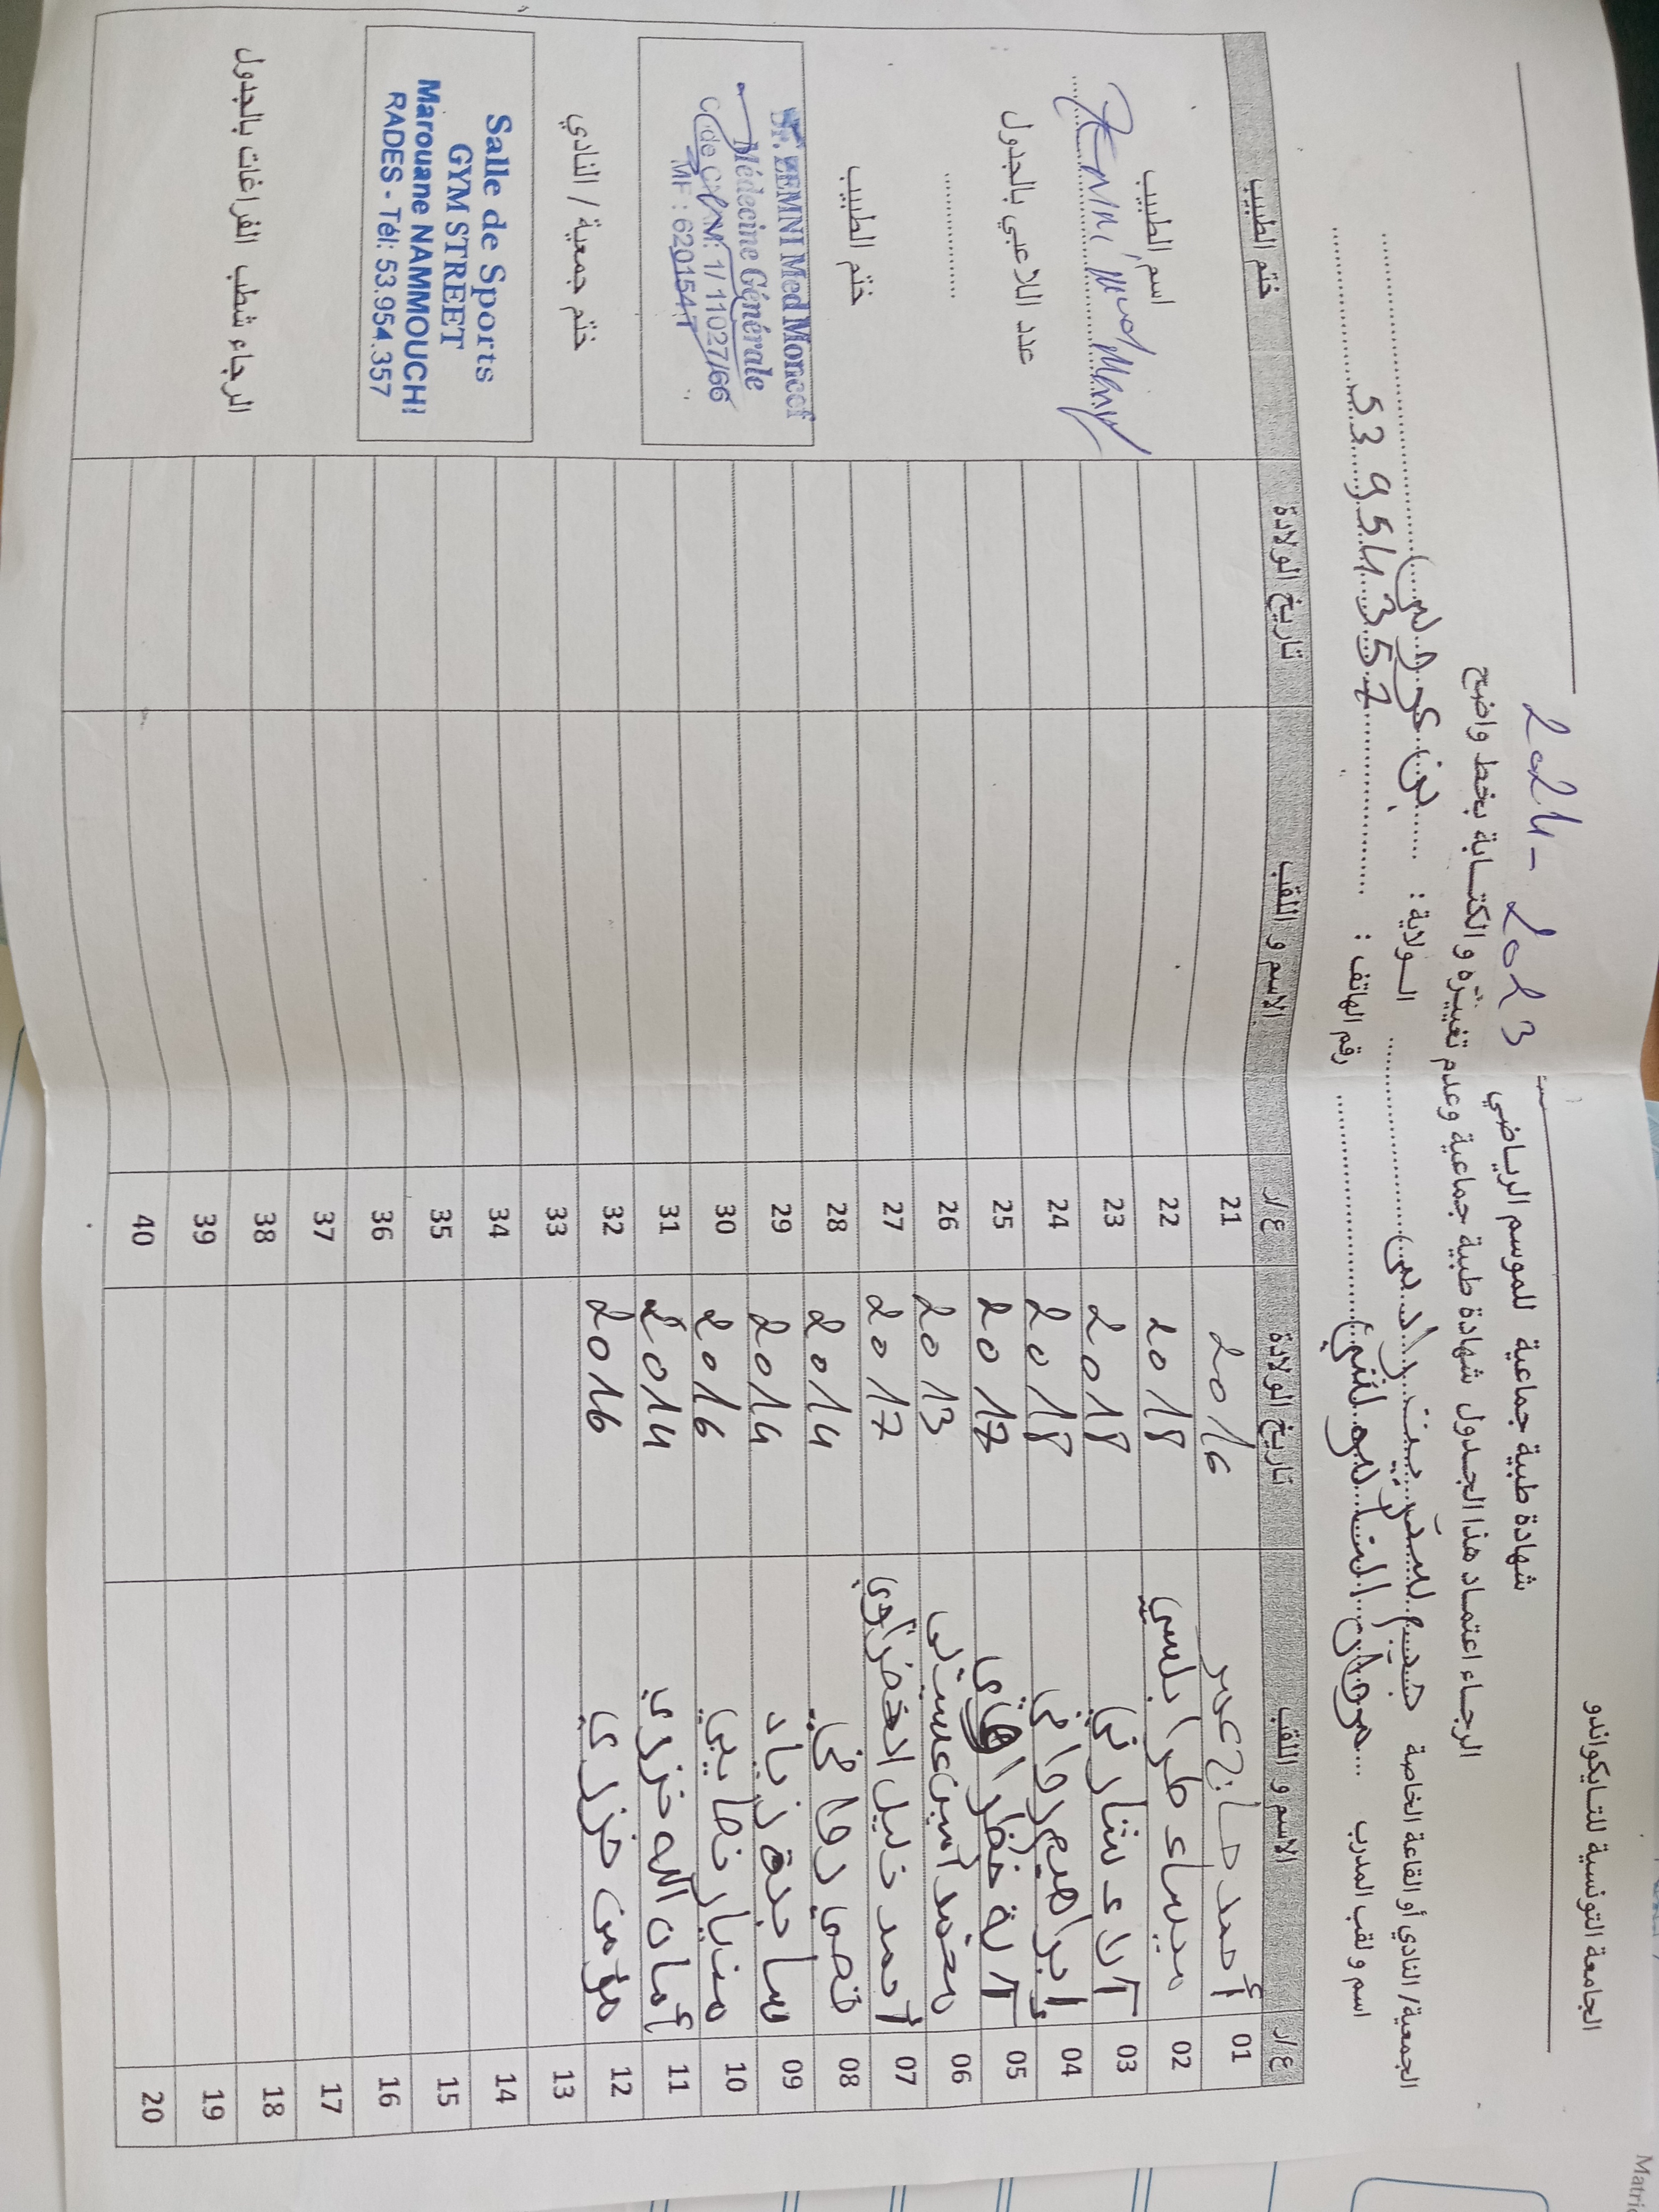 الجامعة التونسية للتايكواندو
شهادة طبية جماعية للموسم الرياضي 2023 - 2024
الرجاء اعتماد هذا الجدول شهادة طبية جماعية وعدم تغييره والكتابة بخط واضح
الجمعية/ النادي أو القاعة الخاصة جيم ستريت رادس الولاية : بن عروس
اسم ولقب المدرب مروان النموشي رقم الهاتف : 53 954 357
ع/ر الاسم و اللقب تاريخ الولادة ع/ر الاسم و اللقب تاريخ الولادة ختم الطبيب
01 أحمد حاج عمر 2016 21
02 ميساء طرابلسي 2018 22
03 آلاء شارني 2018 23
04 إبراهيم رواني 2018 24
05 آية 2017 25
06 محمد أمين 2013 26
07 أحمد خليل الخضراوي 2017 27
08 قصي 2014 28
09 ساجدة زياد 2014 29
10 2016 30
11 أمان الله خزري 2014 31
12 مؤمن خزري 2016 32
13 33
14 34
15 35
16 36
17 37
18 38
19 39
20 40
اسم الطبيب
Zemni Med Moncef
عدد اللاعبي بالجدول
ختم الطبيب
Dr. ZEMNI Med Moncef
Médecine Générale
Code CNAM: 1/11027/66
MF : 620154T
ختم جمعية / النادي
Salle de Sports
GYM STREET
Marouane NAMMOUCHI
RADES - Tél: 53.954.357
الرجاء شطب الفراغات بالجدول